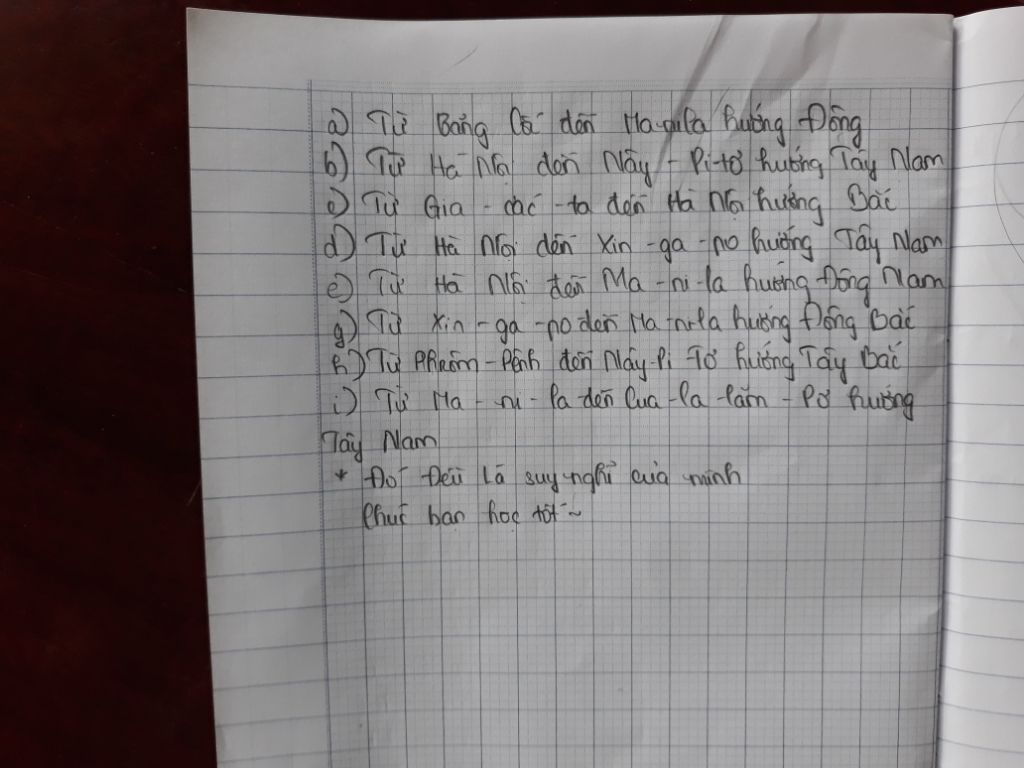 a) Từ Băng Cốc đến Ma-ni-la hướng Đông
b) Từ Hà Nội đến Nây - Pi-tơ hướng Tây Nam
c) Từ Gia - các - ta đến Hà Nội hướng Bắc
d) Từ Hà Nội đến Xin - ga - po hướng Tây Nam
e) Từ Hà Nội đến Ma - ni - la hướng Đông Nam
g) Từ Xin - ga - po đến Ma - ni-la hướng Đông Bắc
h) Từ Phnôm - Pênh đến Nây-Pi Tơ hướng Tây Bắc
i) Từ Ma - ni - la đến Cua -la lăm - Pơ hướng
Tây Nam
* Đó Đều là suy nghĩ của mình
Chúc bạn học tốt~